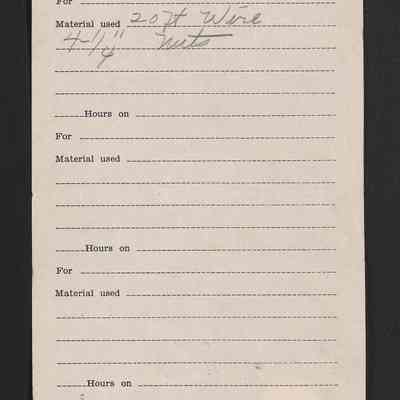 For
Material used 20 ft Wire
4-1/4" nuts
Hours on
For
Material used
Hours on
For
Material used
Hours on